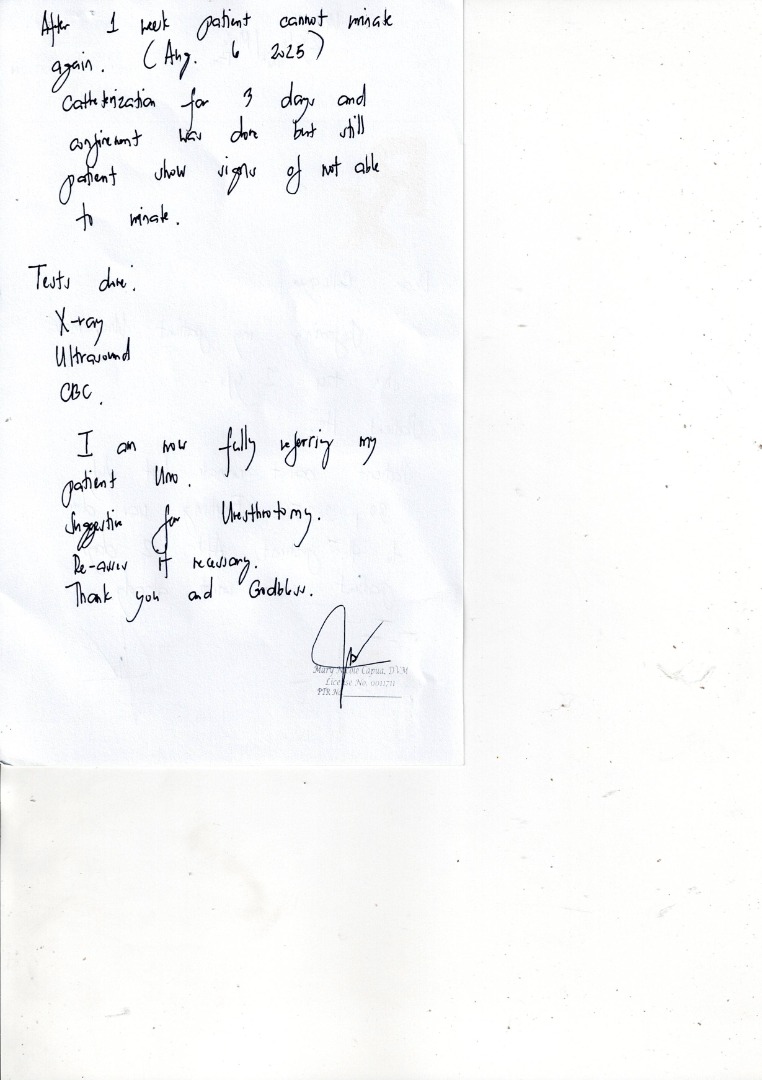 After 1 week patient cannot urinate
again. (Aug. 6 2025)
Catheterization for 3 days and
confinement was done but still
patient show signs of not able
to urinate.
Tests done:
X-ray
Ultrasound
CBC.
I am now fully referring my
patient Uno.
Suggestion for Uresthrotomy.
Re-assess if necessary.
Thank you and Godbless.
Mary Capua, DVM
License No. 0011711
PTR No.